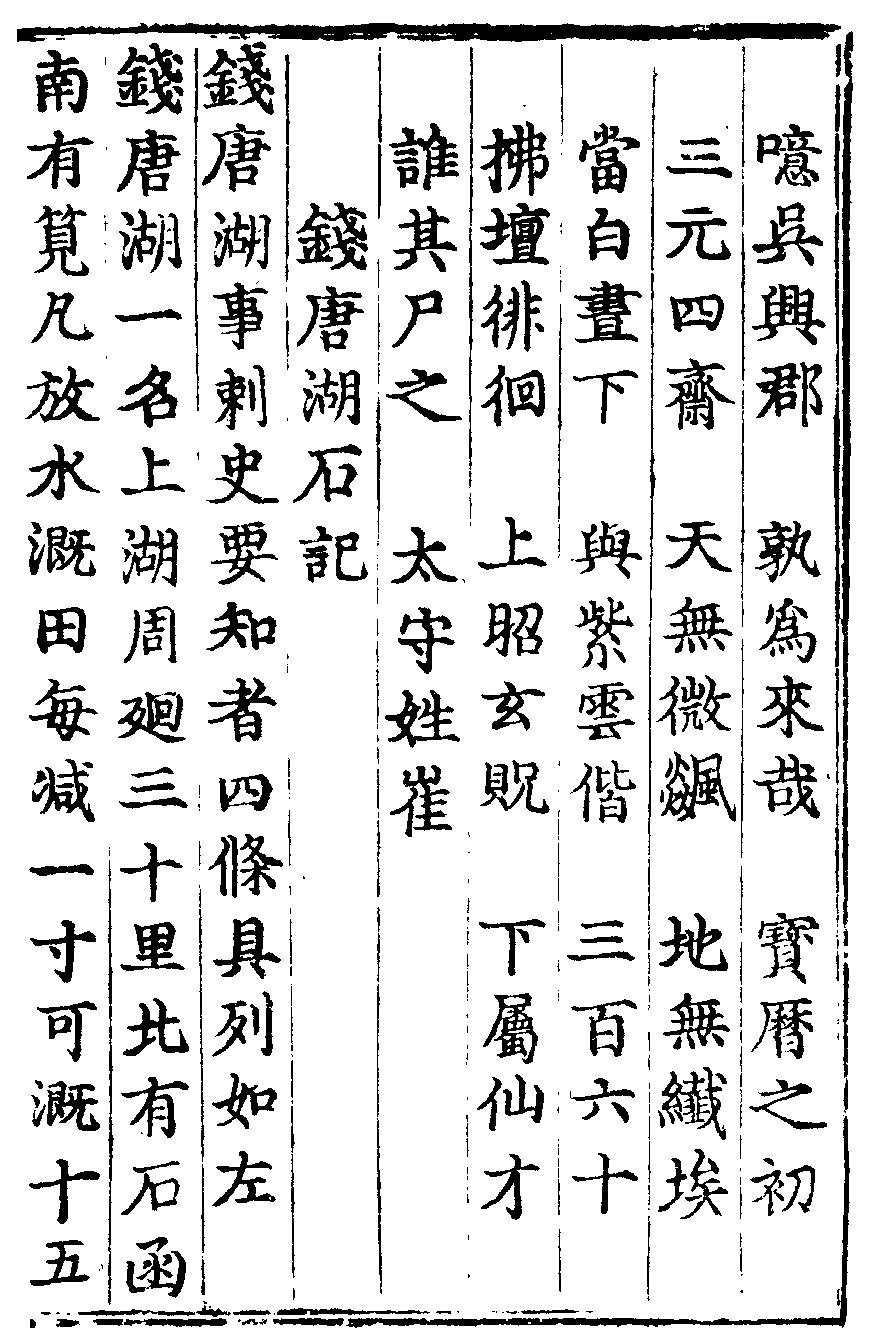 噫吳興郡　孰爲來哉　寶曆之初
三元四齋　天無微飇　地無纖埃
當白晝下　與紫雲偕　三百六十
拂壇徘徊　上昭玄貺　下屬仙才
誰其尸之　太守姓崔
錢唐湖石記
錢唐湖事刺史要知者四條具列如左
錢唐湖一名上湖周廻三十里北有石函
南有筧凡放水溉田每減一寸可溉十五